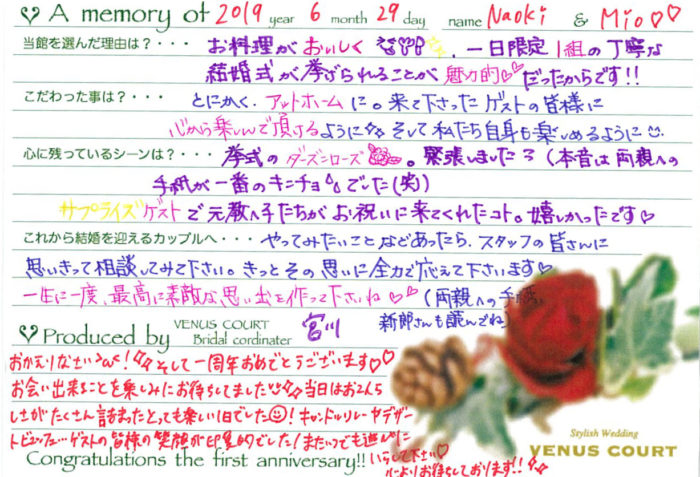 A memory of 2019 year 6 month 29 day name Naoki & Mio♡♡
当館を選んだ理由は？・・・ お料理がおいしく、一日限定1組の丁寧な
結婚式が挙げられることが魅力的♡♡だったからです!!
こだわった事は？・・・ とにかく、アットホームに。来て下さったゲストの皆様に
心から楽しんで頂けるように そして私たち自身も楽しめるように
心に残っているシーンは？・・・ 挙式のダーズンローズ。緊張しました（本音は両親への
手紙が一番のキンチョーでした(笑)
サプライズゲストで元教え子たちがお祝いに来てくれたコト。嬉しかったです♡
これから結婚を迎えるカップルへ・・・ やってみたいことなどあったら、スタッフの皆さんに
思いきって相談してみて下さい。きっとその思いに全力で応えて下さいます♡
一生に一度、最高に素敵な思い出を作って下さいね♡♡（両親への手紙、
新郎さんも読んでね）
Produced by VENUS COURT Bridal cordinater 宮川
おかえりなさいませ！そして一周年おめでとうございます♡♡
お会い出来ることを楽しみにお待ちしてました 当日はお2人ら
しさがたくさん詰まったとっても楽しい1日でした！キャンドルリレーやデザー
トビュッフェ…ゲストの皆様の笑顔が印象的でした！またいつでも遊びに
いらして下さい♡
心よりお待ちしております!!
Congratulations the first anniversary!!
Stylish Wedding
VENUS COURT